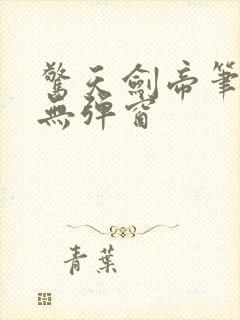 驚天劍帝筆
無彈窗
青葉